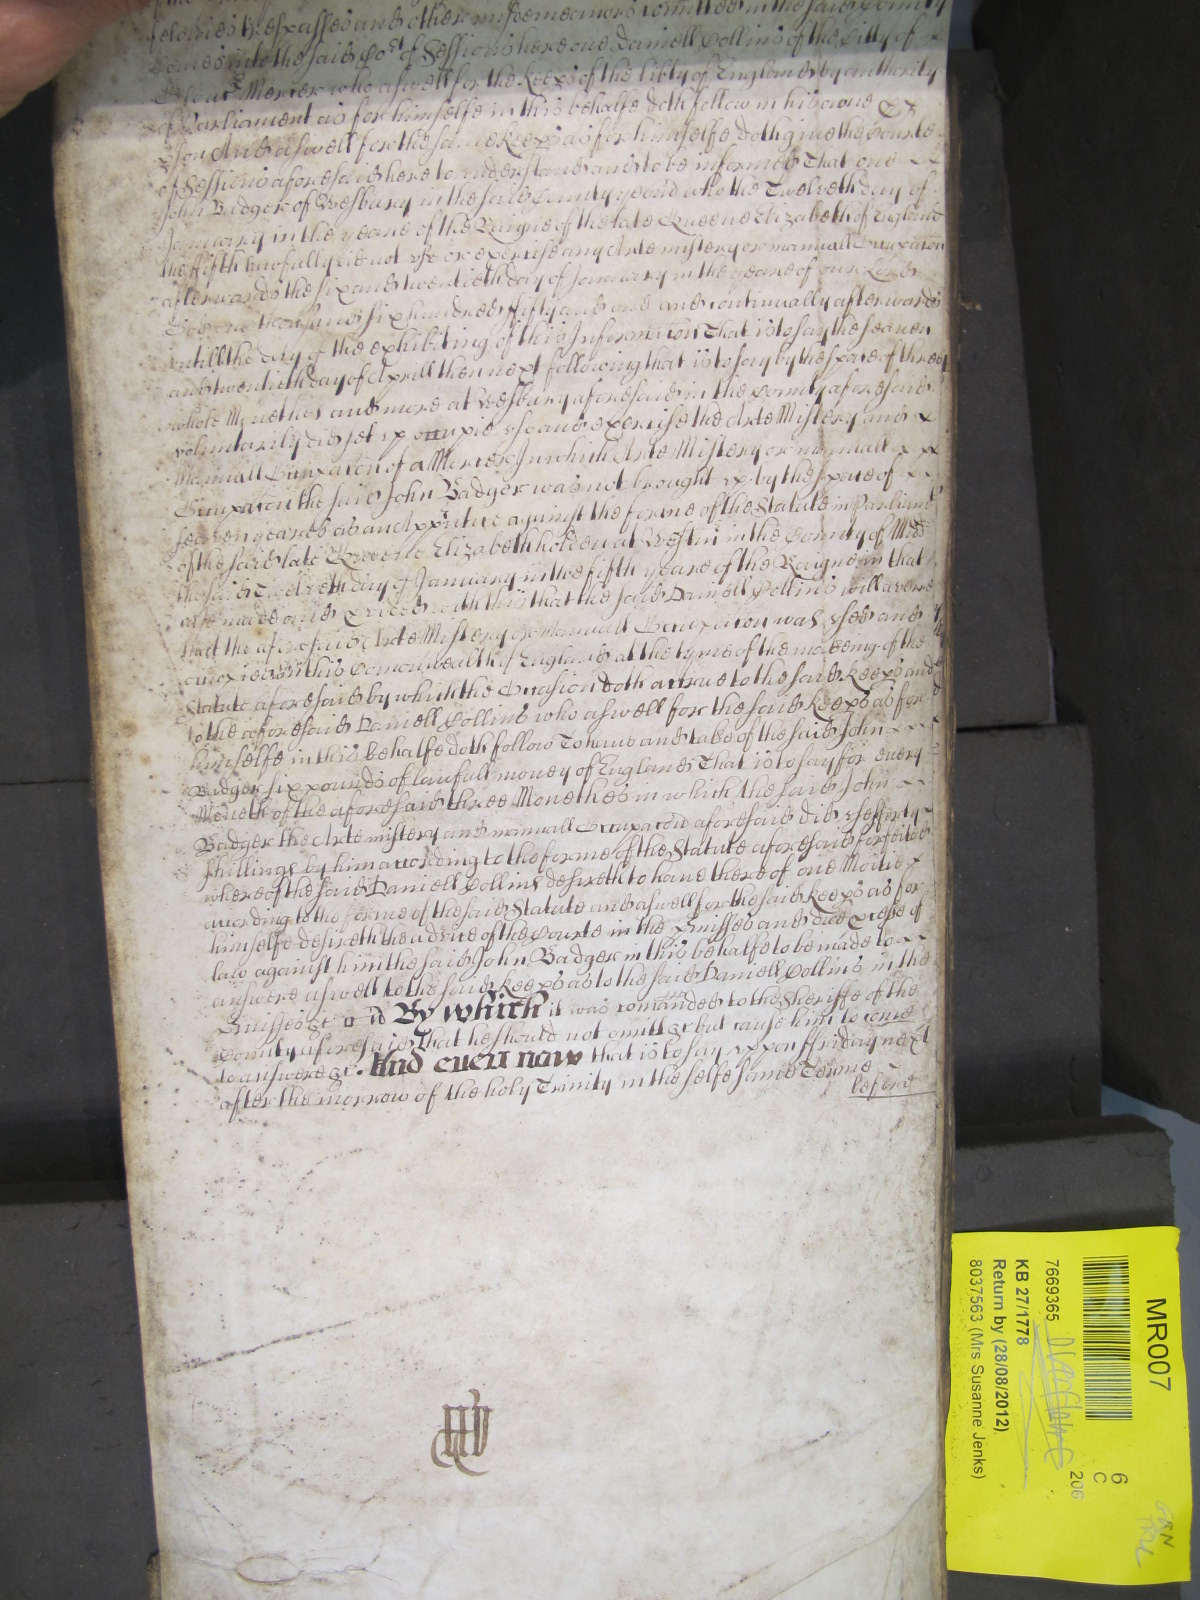 felonies trespasses and other misdemeanors comitted in the said County
Comes into the said Cort of Sessions here one Daniell Collins of the Citty of
Mercer who aswell for the Keepers of the libty of England by authority
of Parliament as for himselfe in this behalfe doth follow in his owne
pson And aswell for the same Keeps as for himselfe doth give the Courte
of Sessions aforesaid here to understand and to be informed That one
John Badger of Wesbury in the said County yeom who the Twelveth day of
January in the yeare of the Reigne of the late Queene Elizabeth of England
the fifth lawfully did not use or exercise any Arte mistery or manuall Occupacon
afterwards the six and twentieth day of January in the yeare of our Lord
God one thousand six hundred fifty and one and continually afterwards
untill the day of the exhibiting of this Informacon That is to say the seaven
and twentieth day of Aprill then next following that is to say by the space of three
whole Monethes and more at Wesbury aforesaid in the County aforesaid
voluntarily did set up occupie use and exercise the Arte Mistery and
Manuall Occupacon of a Mercer In which Arte Mistery or manuall
Occupacon the said John Badger was not brought up by the space of
seaven yeares as an Apprntice against the forme of the Statute in Parliamt
of the said late Queene Elizabeth holden at Westm in the County of Midd
the said Twelveth day of January in the fifth yeare of the Reigne in that
case made and pvided with this that the said Daniell Collins will averre
that the aforesaid Arte Mistery or Manuall Occupacon was used and
occupied in this Comonwealth of England at the tyme of the makeing of the
Statute aforesaid by which the Occasion doth accrue to the said Keeps and
to the aforesaid Daniell Collins who aswell for the said Keeps as for
himselfe in this behalfe doth follow To have and take of the said John
Badger six pounds of lawfull money of England That is to say for every
Moneth of the aforesaid three Monethes in which the said John
Badger the Arte mistery and manuall Occupacon aforesaid did use forty
shillings by him according to the forme of the Statute aforesaid forfeited
whereof the said Daniell Collins desireth to have thereof one Moitie
according to the forme of the said Statute and aswell for the said Keeps as for
himselfe desireth the advice of the Courte in the Pmisses and due pcesse of
law against him the said John Badger in this behalfe to be made to
answere aswell to the said Keeps as to the said Daniell Collins in the
Pmisses &c By which it was comanded to the Sheriffe of the
County aforesaid That he should not omitt &c but cause him to come
to answere &c. And even now that is to say upon Friday next
after the morrow of the holy Trinity in the selfe same Terme
before
MR007
6
C
206
7669365
KB 27/1778
Return by (28/08/2012)
8037563 (Mrs Susanne Jenks)